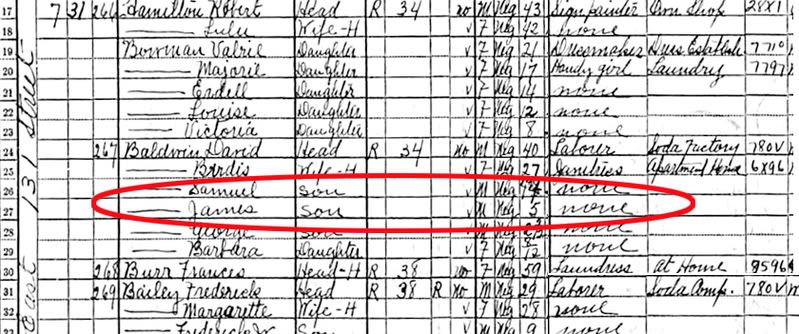 17 7 31 266 Hamilton Robert Head R 34 no M Neg 43 Sign painter Own Shop 28X1
18 Lulu Wife-H v F Neg 42 none
19 Bowman Valrie Daughter v F Neg 21 Dressmaker
20 Majorie Daughter v F Neg 17 Handy girl Laundry 7797
21 Ersell Daughter v F Neg 14 none
22 Louise Daughter v F Neg 12 none
23 Victoria Daughter v F Neg 8 none
24 267 Baldwin David Head R 34 no M Neg 40 Laborer Soda Factory 780V
25 Birdis Wife-H v F Neg 27 Janitress Apartment House 6X96
26 Samuel Son v M Neg 14 none
27 James Son v M Neg 5 none
28 George Son v M Neg none
29 Barbara Daughter v F Neg 8/12 none
30 268 Burr Frances Head-H R 38 no F Neg 59 Laundress At Home 8596
31 269 Bailey Frederick Head R 38 R no M Neg 29 Laborer Soda Comp. 780V W
32 Margarette Wife-H v F Neg 28 none
Frederick Jr Son v M Neg 9 none
East 131 Street